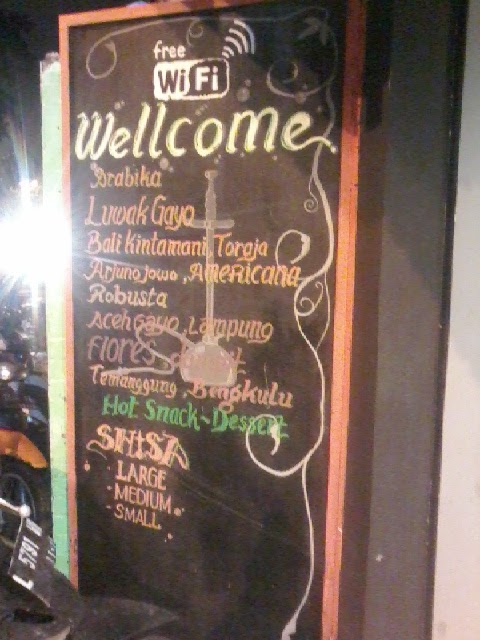 free
WiFi
Wellcome
Arabika
Luwak Gayo
Bali Kintamani, Toroja
Arjuno jowo, Americana
Robusta
Aceh Gayo, Lampung
Flores,
Temanggung, Bengkulu
Hot Snack-Dessert
SHISA
LARGE
- MEDIUM
- SMALL